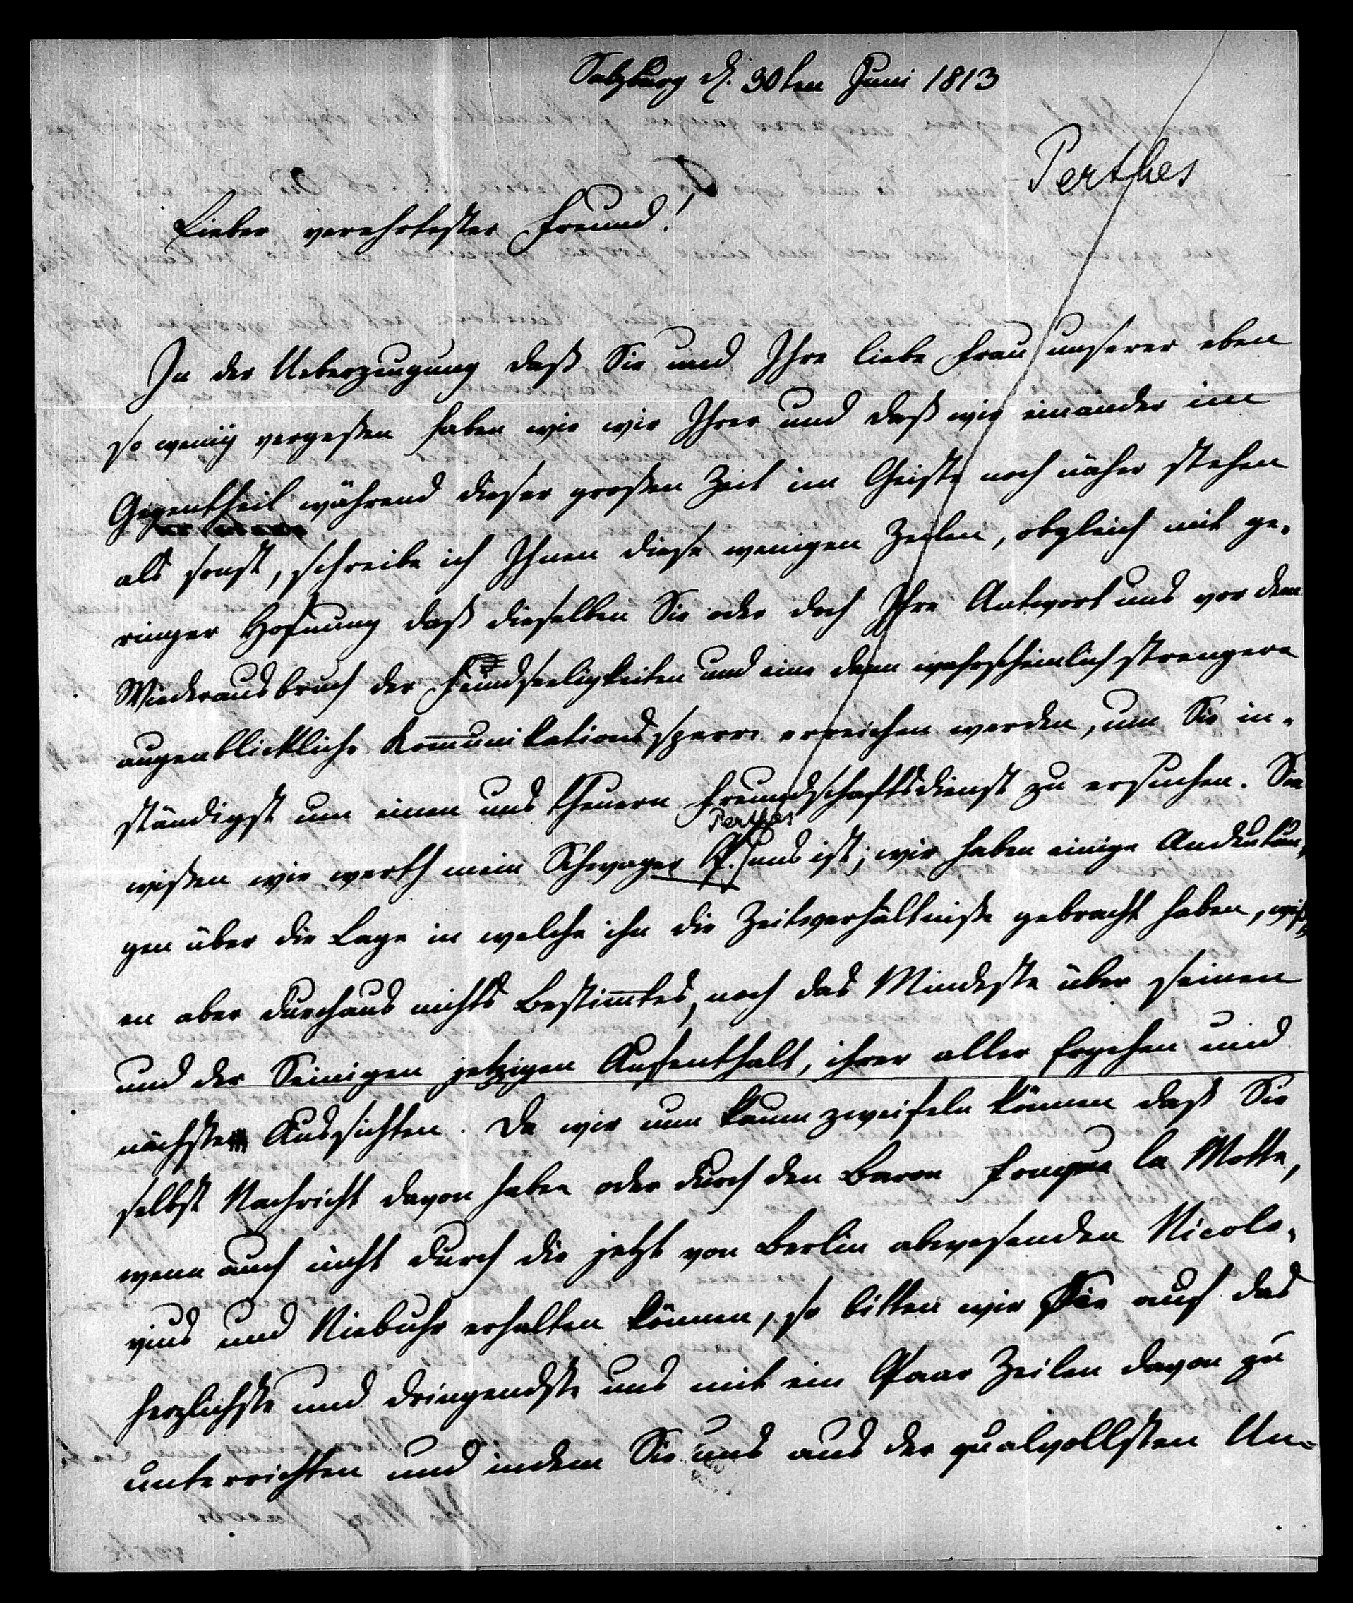 Salzburg d. 30ten Juni 1813
Perthes
Lieber verehrtester Freund!
In der Ueberzeugung daß Sie und Ihre liebe Frau unserer eben
so wenig vergeßen haben wie wir Ihrer und daß wir einander im
Gegentheil während dieser großen Zeit im Geiste noch näher stehen
als sonst, schreibe ich Ihnen diese wenigen Zeilen, obgleich mit ge-
ringer Hofnung daß dieselben Sie oder doch Ihre Antwort uns vor dem
Wiederausbruch der Feindseeligkeiten und eine dann wahrscheinlich strengere
augenblickliche Kom̄unikationssperre erreichen werden, um Sie in-
ständigst um einen uns theuern Freundschaftsdienst zu ersuchen. Sie
Perthes
wißen wie werth mein Schwager P. uns ist; wir haben einige Andeutun-
gen über die Lage in welche ihn die Zeitverhältniße gebracht haben, wiß-
en aber durchaus nichts Bestim̄tes, noch das Mindeste über seinen
und der Seinigen jetzigen Aufenthalt, ihrer aller Ergehen und
nächste Aussichten. Da wir nun kaum zweifeln können daß Sie
selbst Nachricht davon haben oder durch den Baron Fouque la Motte,
wenn auch nicht durch die jetzt von Berlin abwesenden Nicolo-
vius und Niebuhr erhalten können, so bitten wir Sie auf das
herzlichste und dringendste uns mit ein Paar Zeilen davon zu
unterrichten und indem Sie uns aus der qualvollsten Un-